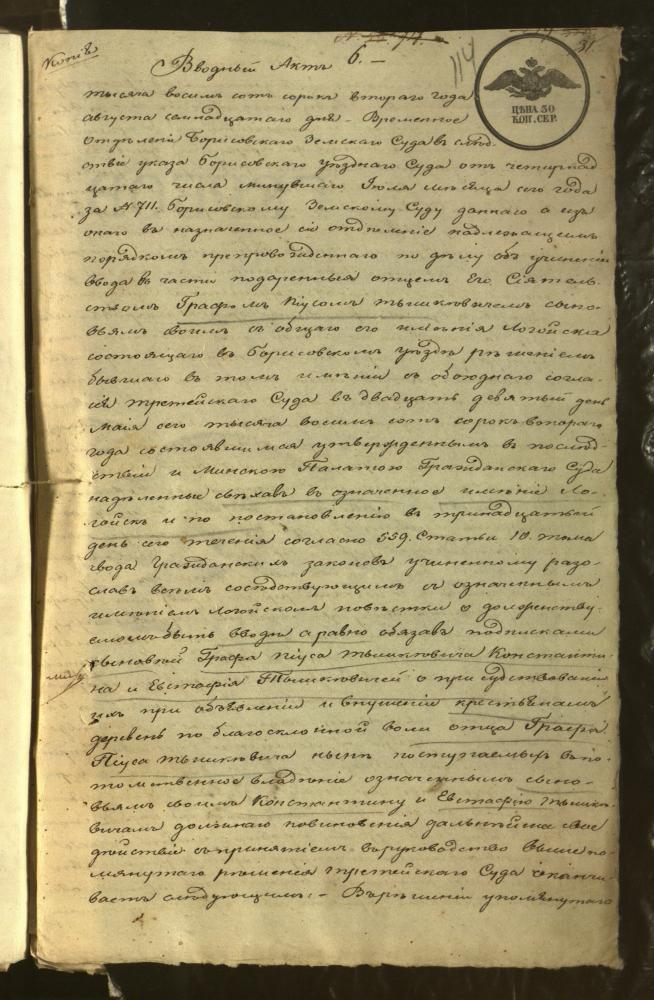 Копія
6.
114
31.
ЦѢНА 30
КОП. СЕР.
Вводный Актъ
тысяча восемъ сотъ сорокъ втораго года
августа семнадцатаго дня. – Временное
Отделеніе Борисовскаго Земскаго Суда въ слѣд-
ствіе указа Борисовскаго уѣзднаго Суда отъ четырнад
цатаго числа минувшаго Іюля мѣсяца сего года
за № 711. Борисовскому Земскому Суду даннаго а изъ
онаго въ назначенное сіе отдѣленіе надлежащимъ
порядкомъ препровожденнаго по дѣлу объ учиненіи
ввода въ части подаренныя отцемъ Его Сіятель-
ствомъ Графомъ Піусомъ Тышкевичемъ сыно-
вьямъ своимъ съ общаго его имѣнія Логойска
состоящаго въ Борисовскомъ уѣздѣ рѣшеніемъ
бывшаго въ томъ имѣніи съ обоюднаго согла-
сія третейскаго Суда въ двадцать девятый день
Маія сего тысяча восемъ сотъ сорокъ втораго
года состоявшимся утвержденнымъ въ послѣд-
ствіи и Минскою Палатою Гражданскаго Суда
надѣленные съѣхавъ въ означенное имѣніе Ло-
гойскъ и по постановленію въ тринадцатый
день сего теченія согласно 559. Статьи 10. тома
свода Гражданскихъ законовъ учиненному разо-
славъ всѣмъ сосѣдствующимъ съ означеннымъ
имѣніемъ Логойскомъ повѣстки о долженству-
ющемъ быть вводѣ а равно обязавъ подписками
сыновей Графа Піуса Тышкевича Константи-
на и Евстафія Тышкевичей о присудствованіи
ихъ при объявленіи и внушеніи крестьянамъ
деревень по благосклонной воли отца Графа
Піуса Тышкевича нынѣ поступаемыхъ въ по-
томственное владѣніе означеннымъ сыно-
вьямъ своимъ Константину и Евстафію Тышке-
вичамъ должнаго повиновенія дальнѣйшее свое
дѣйствіе съ принятіемъ въ руководство выше по-
мянутаго рѣшенія третейскаго Суда оканчи-
ваетъ слѣдующимъ: – Въ рѣшеніи упомянутаго